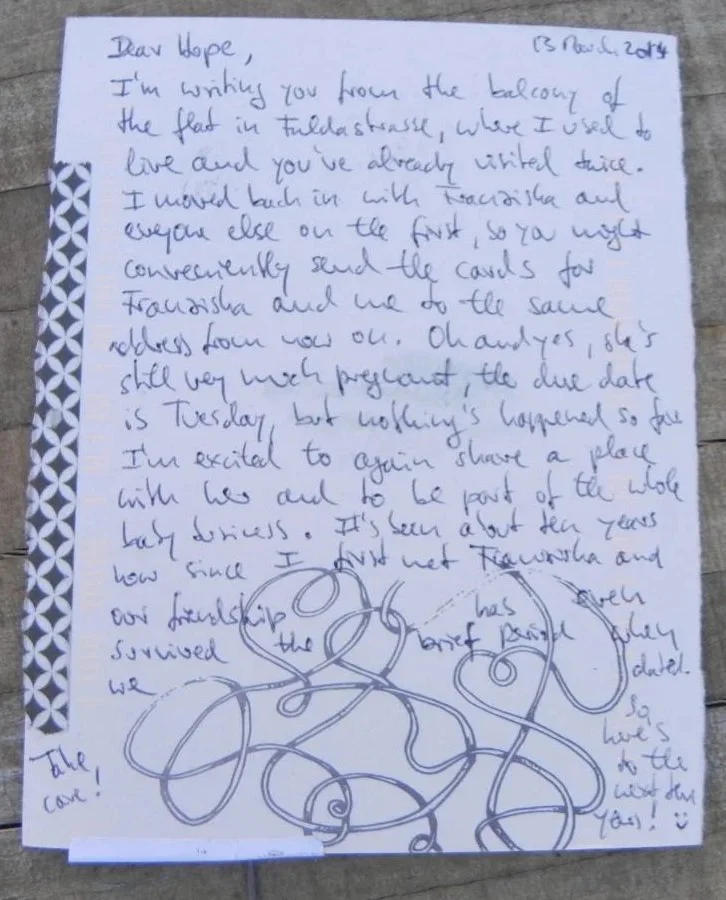 Dear Hope,
13 March 2014
I'm writing you from the balcony of
the flat in Fuldastrasse, where I used to
live and you've already visited twice.
I moved back in with Franziska and
everyone else on the first, so you might
conveniently send the cards for
Franziska and me to the same
address from now on. Oh and yes, she's
still very much pregnant, the due date
is Tuesday, but nothing's happened so far
I'm excited to again share a place
with her and to be part of the whole
baby business. It's been about ten years
now since I first met Franziska and
our friendship has even
survived the brief period when
we dated.
So
here's
to the
next ten
years! :)
Take
care!